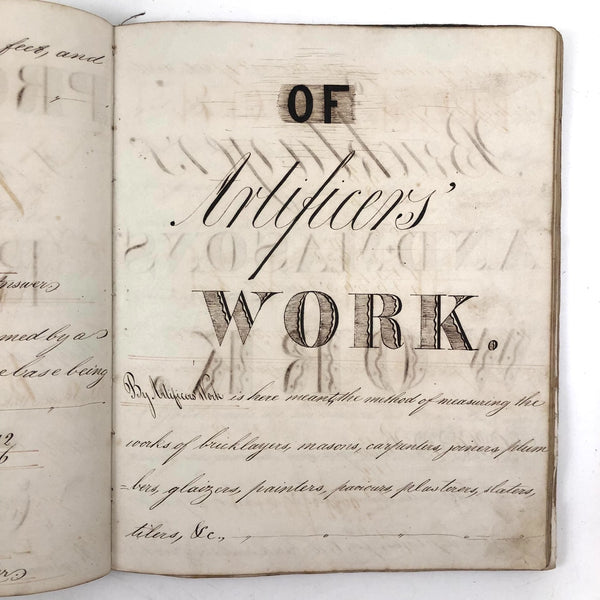 feet, and
Answer
med by a
e base being
12
6
OF
Artificers'
WORK.
By Artificers Work is here meant, the method of measuring the
works of bricklayers, masons, carpenters, joiners, plum
=bers, glaizers, painters, paviours, plasterers, slaters,
tilers, &c.,